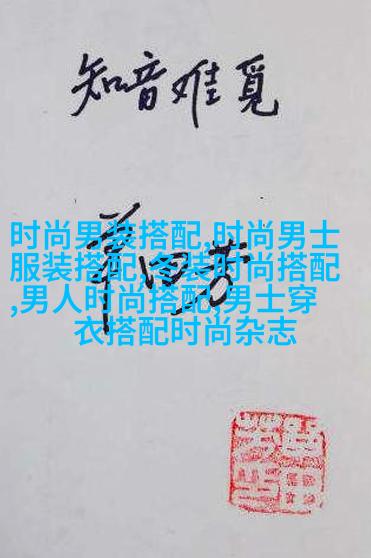 知音难觅
单田芳
时尚男装搭配,时尚男士
服装搭配,冬装时尚搭配
,男人时尚搭配,男士穿
衣搭配时尚杂志